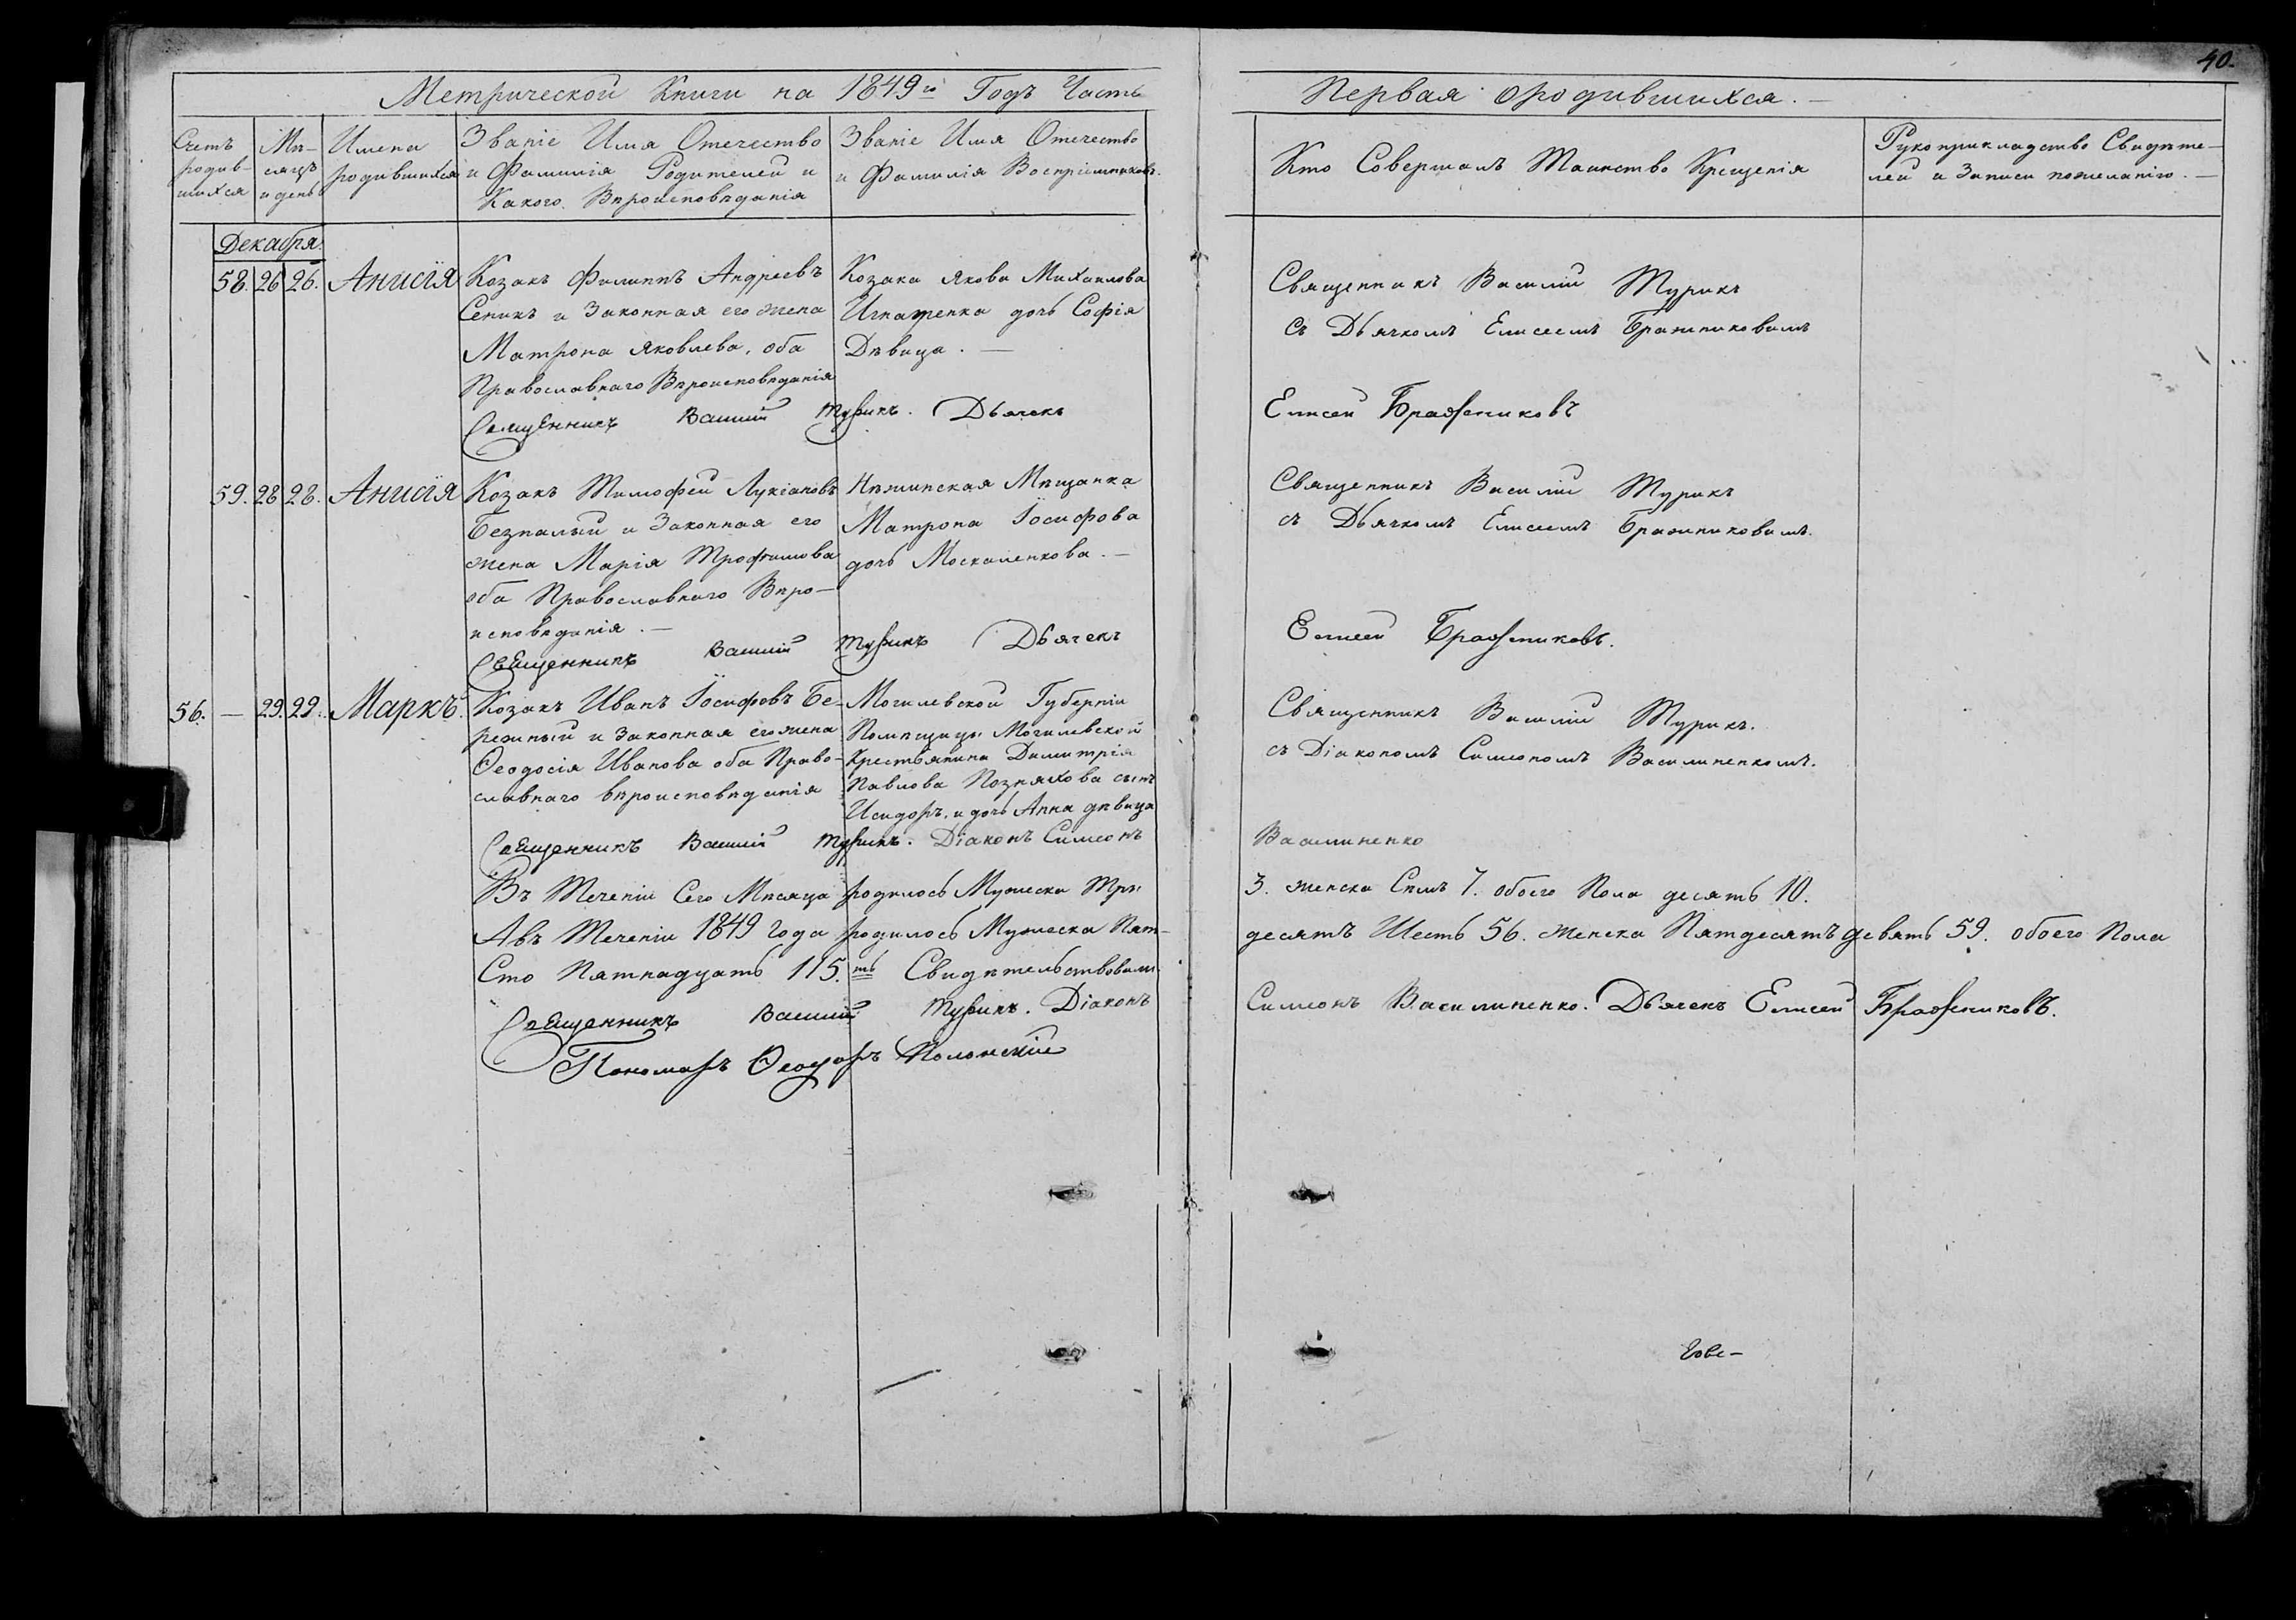 40.
Метрической Книги на 1849й Годъ Часть
Первая о родившихся. —
Счетъ родив-шихся
Мѣ-сяцъ и день
Имена родившихся
Званіе Имя Отечество и Фамилія Родителей и Какого Вѣроисповѣданія
Званіе Имя Отечество и Фамилія Воспріемниковъ.
Кто Совершалъ Таинство Крещенія
Рукоприкладство Свидѣте-лей и Записи пожеланію. —
Декабря.
58. 26 26. Анисія
Козакъ Филиппъ Андреевъ
Сеникъ и Законная его жена
Матрона Яковлева, оба
Православнаго Вѣроисповѣданія
Козака Якова Михаилова
Игнатенка дочь Софія
Дѣвица. —
Священникъ Василій Турикъ
съ Дьячкомъ Елисеемъ Бражниковымъ
Священникъ Василій Турикъ. Дьячекъ
Елисей Бражниковъ
59. 28 28. Анисія
Козакъ Тимофей Лукіановъ
Безпалый и Законная его
жена Марія Трофимова
оба Православнаго Вѣро-
исповѣданія. —
Нѣжинская Мѣщанка
Матрона Іосифова
дочь Москаленкова. —
Священникъ Василій Турикъ
съ Дьячкомъ Елисеемъ Бражниковымъ.
Священникъ Василій Турикъ Дьячекъ
Елисей Бражниковъ.
56. — 29. 29. Маркъ.
Козакъ Иванъ Іосифовъ Бе-
режный и Законная его жена
Ѳеодосія Иванова оба Право-
славнаго вѣроисповѣданія
Могилевской Губерніи
Помѣщицы Могилевской
Крестьянина Димитрія
Павлова Познякова сынъ
Исидоръ, и дочь Анна дѣвица
Священникъ Василій Турикъ.
съ Діакономъ Симеономъ Василиненкомъ.
Священникъ Василій Турикъ. Діаконъ Симеонъ
Василиненко
Въ Теченіи Сего Мѣсяца родилось Мужеска Три
3. женска Семь 7. обоего Пола десять 10.
А въ Теченіи 1849 года родилось Мужеска Пят-
десятъ Шесть 56. женска Пятдесятъ девять 59. обоего Пола
Сто Пятнадцать 115.ть Свидѣтельствовали
Священникъ Василій Турикъ. Діаконъ
Симеонъ Василиненко. Дьячекъ Елисей Бражниковъ.
Пономарь Ѳеодоръ Полонскій